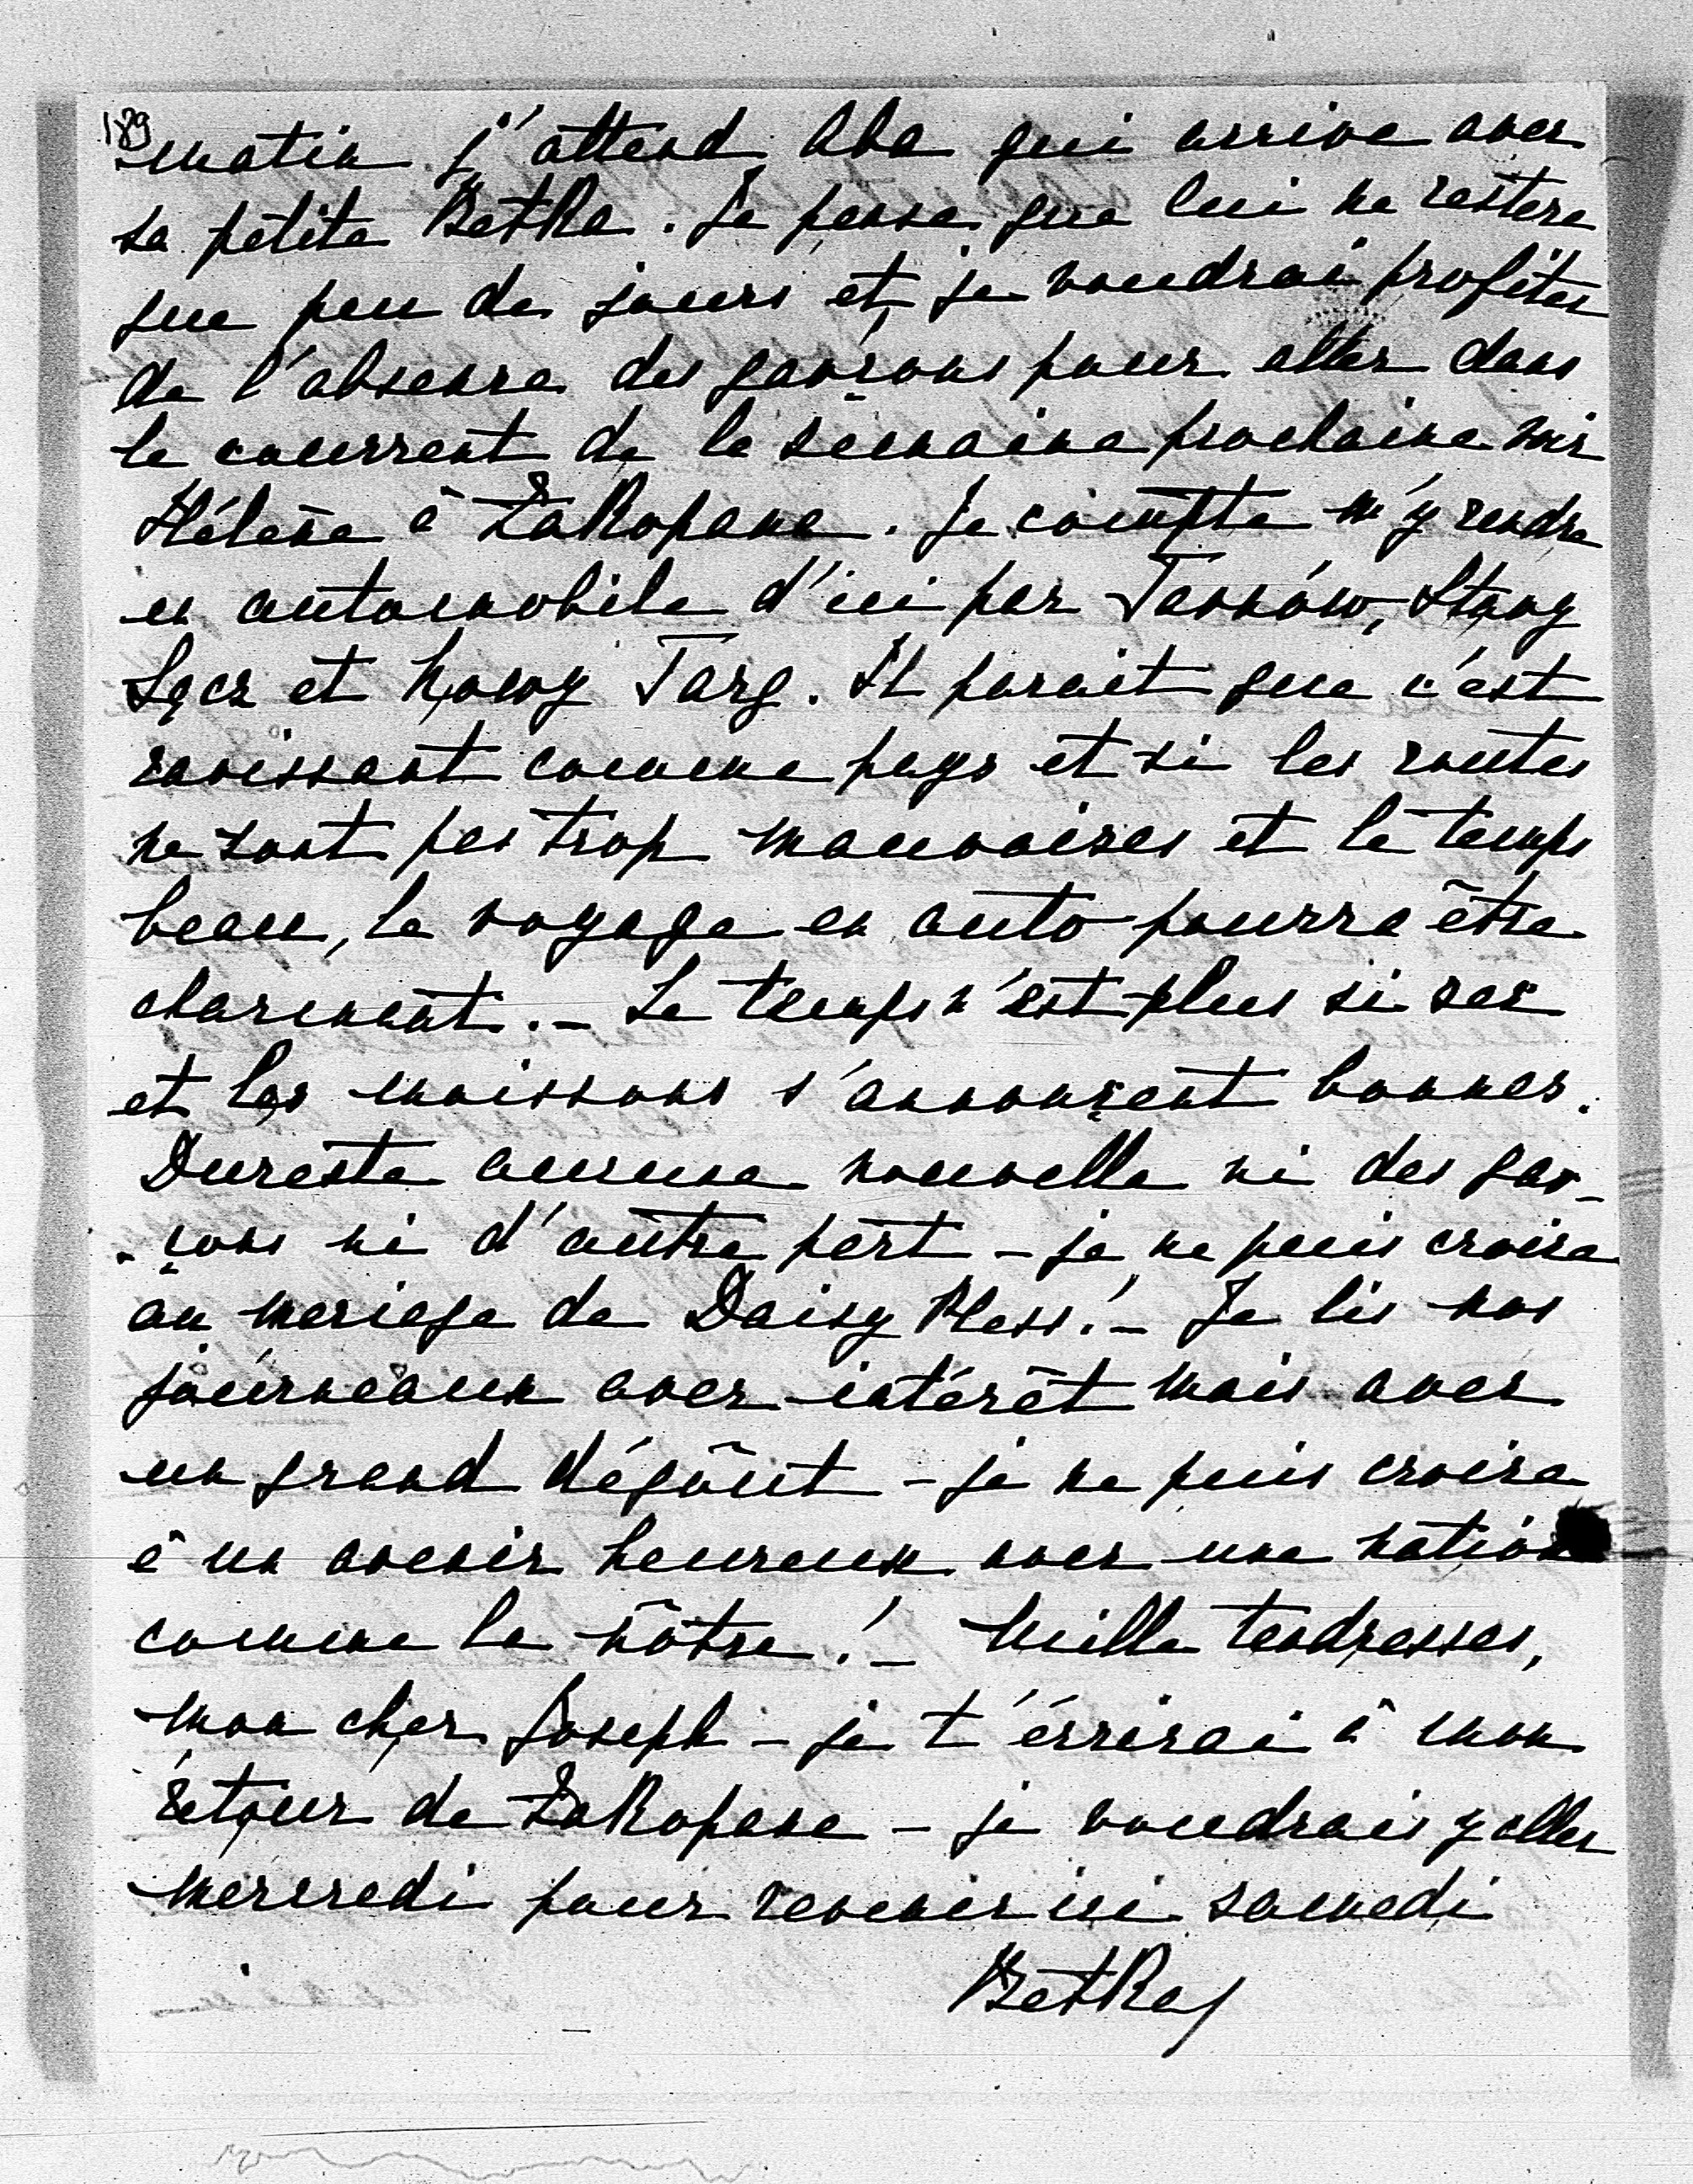 189
matin j'attend Aba qui arrive avec
sa petite Betka. Je pense que lui ne restera
que peu de jours et je voudrai profiter
de l'absence des garçons pour aller dans
le courrent de la semaine prochaine voir
Hélène à Zakopane. Je compte m'y rendre
en automobile d'ici par Tarnów, Stary
Sącz et Nowy Targ. Il parait que c'est
ravissant comme pays et si les routes
ne sont pas trop mauvaises et le temps
beau, le voyage en auto pourra être
charmant. - Le temps n'est plus si sec
et les moissons s'annonçent bonnes.
Dureste aucune nouvelle ni des gar-
-çons ni d'autre part - je ne puis croire
au mariage de Daisy Pless! - Je lis nos
journeaux avec intérêt mais avec
un grand dégoût - je ne puis croire
à un avenir heureux avec une nation
comme la nôtre! - Mille tendresses,
mon cher Joseph - je t'écrirai à mon
retour de Zakopane - je voudrais y aller
mercredi pour revenir ici samedi
Betka